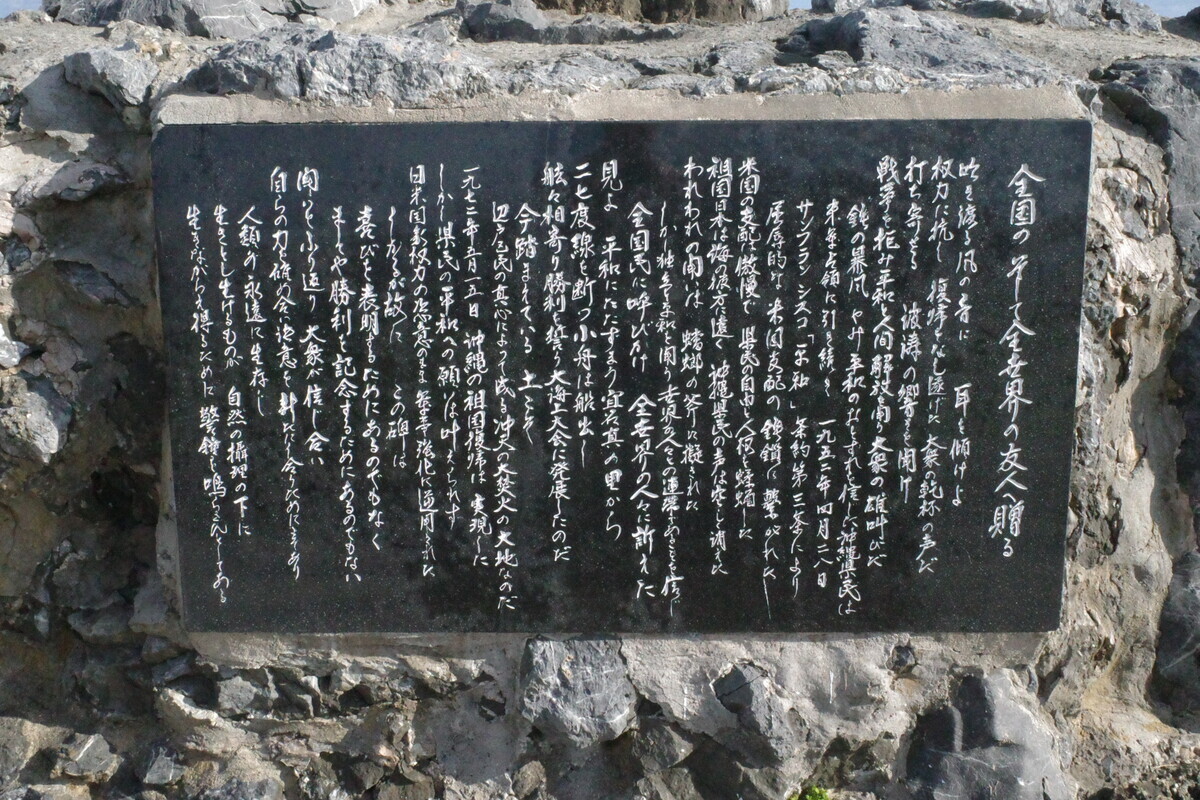 全国のそして全世界の友人へ贈る
吹き渡る風の音に 耳を傾けよ
权力に抗し 復帰をなし遂げた 大衆の乾杯の声だ
打ち寄せる 波濤の響きを聞け
戦争を拒み平和と人間解放を闘う大衆の雄叫びだ
鉄の暴風 やみ平和のおとずれを信じた沖縄県民は
米軍占領に引き続き 一九五二年四月二八日
サンフランシスコ「平和」条約第三条により
屈辱的な米国支配の鉄鎖に繋がれた
米国の支配は傲慢で 県民の自由と人権を蹂躙した
祖国日本は海の彼方に遠く 沖縄県民の声は空しく消えた
われわれの闘いは 蟷螂の斧に擬された
しかし独立と平和を闘う世界の人々との連帯あることを信じ
全国民に呼びかけ 全世界の人々に訴えた
見よ 平和にたたずまう宜名真の里から
二七度線を断つ小舟は船出し
舷々相寄り勝利を誓う大海上大会に発展したのだ
今踏まえている 土こそ
辺戸区民の真心によって成る沖天の大焚火の大地なのだ
一九七二年五月一五日 沖縄の祖国復帰は 実現した
しかし県民の平和への願いは叶えられず
日米国家权力の恣意のまま 軍事強化に逆用された
しかるが故に この碑は
喜びを表明するためにあるのでもなく
ましてや勝利を記念するためにあるのでもない
闘いをふり返り 大衆が信じ合い
自らの力を確め合い決意を新たにし合うためにこそあり
人類が永遠に生存し
生きとし生けるものが 自然の攝理の下に
生きながらえ得るために 警鐘を鳴らさんとしてある